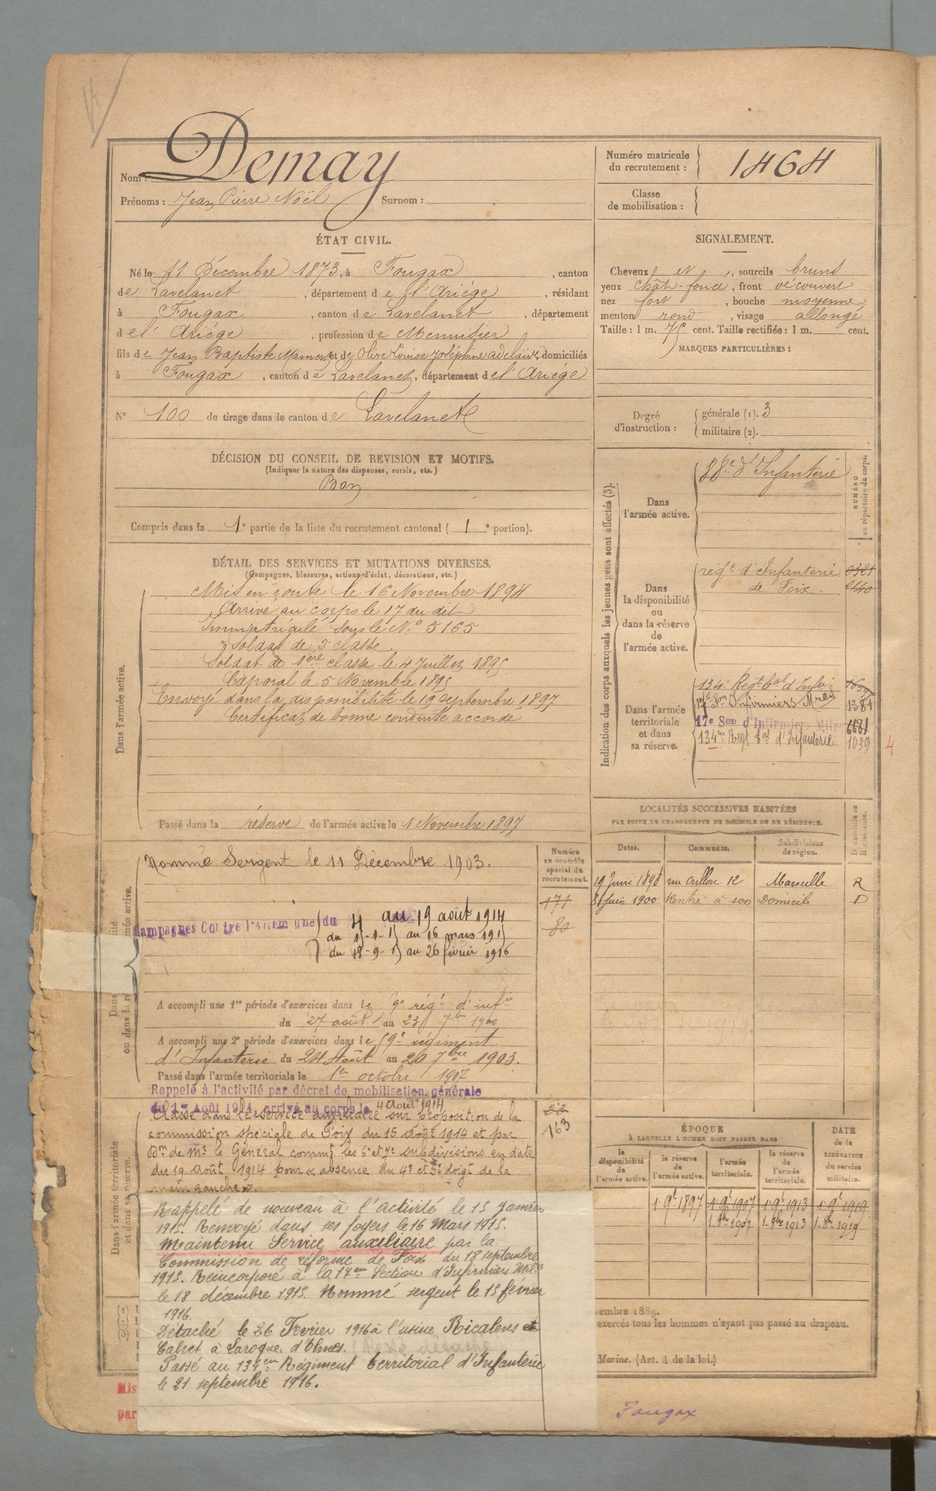 Nom: Demay
Prénoms: Jean Pierre Noël Surnom:
Numéro matricule du recrutement: 1464
Classe de mobilisation:
ÉTAT CIVIL.
Né le 11 Décembre 1873, à Fougax, canton
de Lavelanet, département de l'Ariège, résidant
à Fougax, canton de Lavelanet, département
de l'Ariège, profession de Menuisier
fils de Jean Baptiste et de Olive Louise Joséphine adelaïde, domiciliés
à Fougax, canton de Lavelanet, département de l'Ariège
N° 100 de tirage dans le canton de Lavelanet
SIGNALEMENT.
Cheveux et, sourcils bruns
yeux chât-foncé, front découvert
nez fort, bouche moyenne
menton rond, visage allongé
Taille: 1 m. 75 cent. Taille rectifiée: 1 m. cent.
MARQUES PARTICULIÈRES:
Degré d'instruction: générale (1). 3
militaire (2).
DÉCISION DU CONSEIL DE REVISION ET MOTIFS.
(Indiquer la nature des dispenses, sursis, etc.)
Bon
Compris dans la 1e partie de la liste du recrutement cantonal (1e portion).
DÉTAIL DES SERVICES ET MUTATIONS DIVERSES.
(Campagnes, blessures, actions d'éclat, décorations, etc.)
Dans l'armée active.
Mis en route le 16 Novembre 1894
Arrivé au corps le 17 du dit
Immatriculé sous le N° 5165
Soldat de 2e classe
Soldat de 1ère classe le 4 Juillet 1895
Caporal le 5 Novembre 1895
Envoyé dans la disponibilité le 19 septembre 1897
Certificat de bonne conduite accordé
Passé dans la réserve de l'armée active le 1 Novembre 1897
Indication des corps auxquels les jeunes gens sont affectés (3).
Dans l'armée active.
d'Infanterie
Dans la disponibilité ou dans la réserve de l'armée active.
regt d'Infanterie
de Foix.
Dans l'armée territoriale et dans sa réserve.
134e Regt tal d'Infie
17e Son Infirmiers Mres 1381
17e Son d'Infirmiers Mres 6681
134me Regt tal d'Infanterie 1039
4
LOCALITÉS SUCCESSIVES HABITÉES
PAR SUITE DE CHANGEMENTS DE DOMICILE OU DE RÉSIDENCE.
Dates. Communes. Subdivisions de région.
19 Juin 1898 rue Crillon 12 Marseille R
Juin 1900 Rentré à son Domicile D
Numéro au contrôle spécial du recrutement.
171
80
Nommé Sergent le 11 Décembre 1903.
Campagnes Contre l'Allemagne du 4 au 19 août 1914
du 15-1-15 au 16 mars 1915
du 18-9-15 au 26 février 1916
A accompli une 1re période d'exercices dans le 9e regt d'infie
du 27 août au 23 7bre 1900
A accompli une 2e période d'exercices dans le 59e régiment
d'Infanterie du 24 Août au 20 7bre 1903.
Passé dans l'armée territoriale le 1er octobre 1907
Dans l'armée territoriale et dans sa réserve.
Rappelé à l'activité par décret de mobilisation générale
du 1er Août 1914, arrivé au corps le 4 août 1914
Classé dans le service auxiliaire sur proposition de la
commission spéciale de Foix du 15 Août 1914 et par
Don de Mr le Général commt les 6e et 7e subdivisions en date
du 19 Août 1914 pour « absence du 4e et 5e doigt de la
main gauche ».
163
Rappelé de nouveau à l'activité le 15 janvier
1915. Renvoyé dans ses foyers le 16 Mars 1915.
Maintenu Service auxiliaire par la
Commission de réforme de Foix du 18 septembre
1915. Réincorporé à la 17em Section d'Infirmiers Milres
le 18 décembre 1915. Nommé sergent le 15 février
1916.
Détaché le 26 Fevrier 1916 à l'usine Ricalens et
Calvet à Laroque d'Olmes.
Passé au 134em Régiment territorial d'Infanterie
le 21 septembre 1916.
ÉPOQUE
À LAQUELLE L'HOMME DOIT PASSER DANS
DATE de la LIBÉRATION du service militaire.
la disponibilité de l'armée active. la réserve de l'armée active. l'armée territoriale. la réserve de l'armée territoriale.
1 9bre 1897 1 9bre 1907 1 9bre 1913 1 9bre 1919
1. 8bre 1907 1. 8bre 1913 1. 8bre 1919
embre 1889.
exercés tous les hommes n'ayant pas passé au drapeau.
Marine. (Art. 4 de la loi.)
Mis
par
Fougax